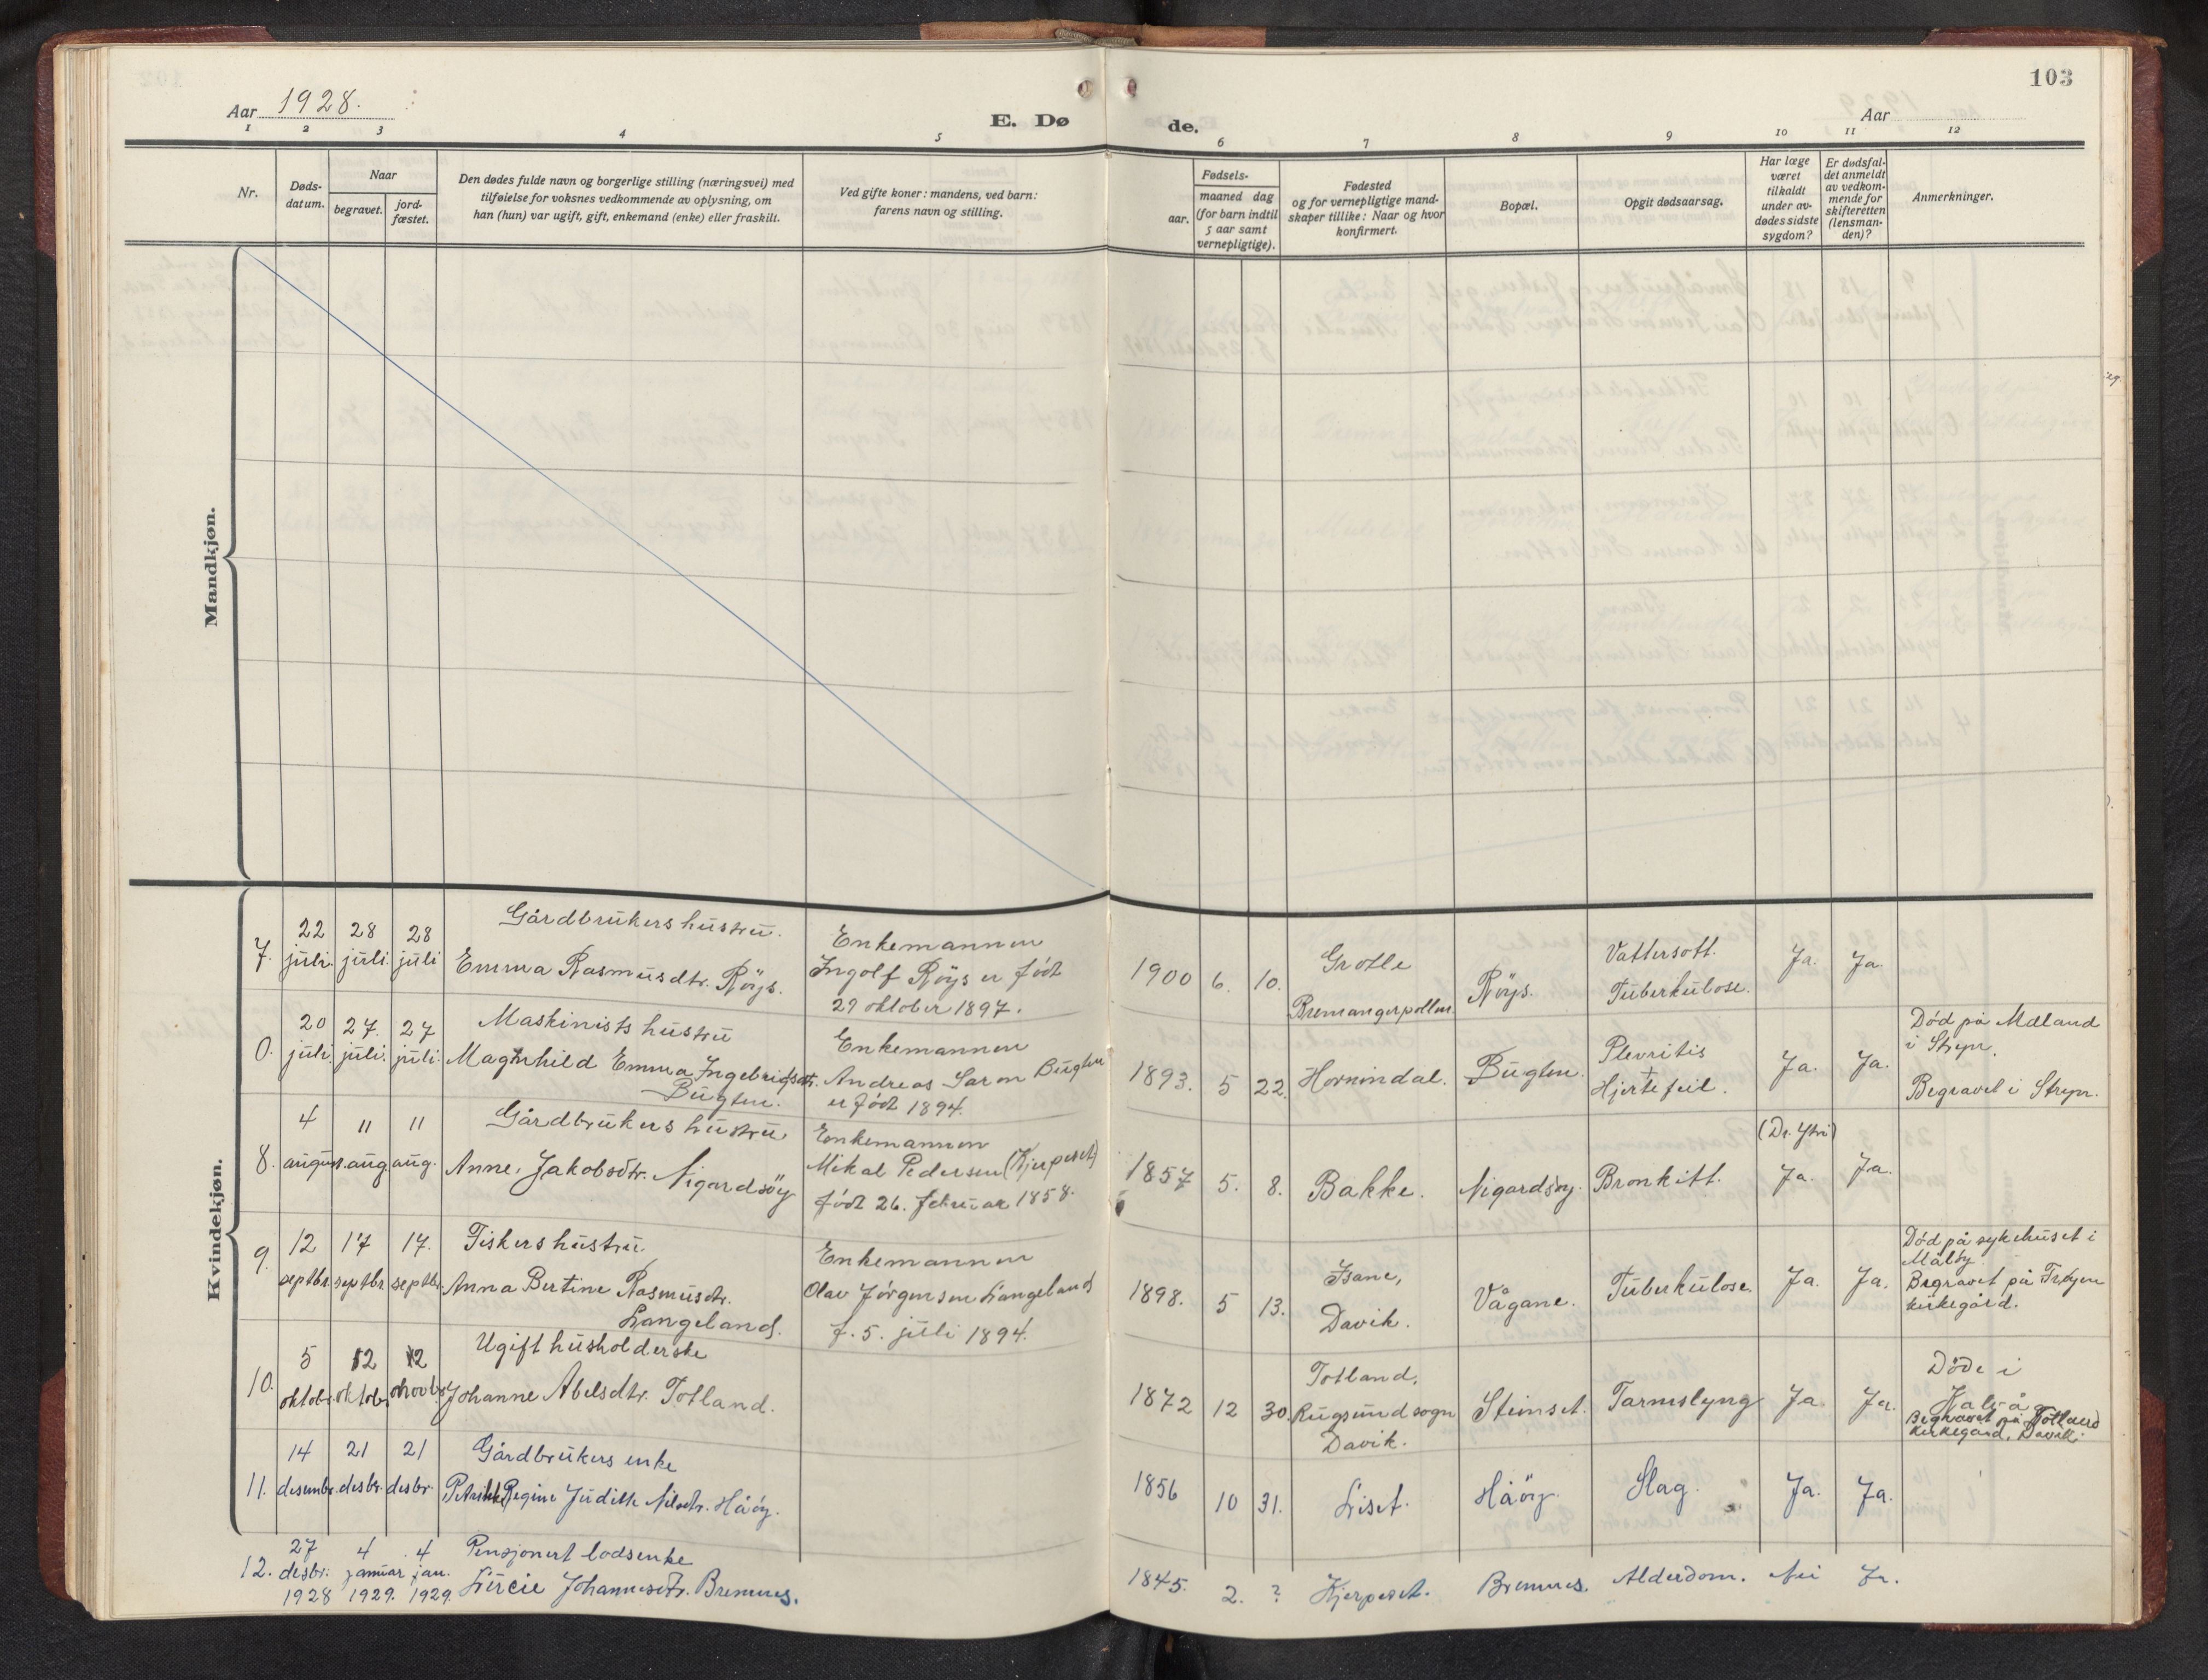 103
Aar 1928.
E. Dø
de.
Aar
1 2 3 4 5 6 7 8 9 10 11 12
Nr.
Døds-
datum.
Naar
begravet.
jord-
fæstet.
Den dødes fulde navn og borgerlige stilling (næringsvei) med
tilføielse for voksnes vedkommende av oplysning, om
han (hun) var ugift, gift, enkemand (enke) eller fraskilt.
Ved gifte koner: mandens, ved barn:
farens navn og stilling.
Fødsels-
aar.
maaned dag
(for barn indtil
5 aar samt
vernepligtige).
Fødested
og for vernepligtige mand-
skaper tillike: Naar og hvor
konfirmert.
Bopæl.
Opgit dødsaarsag.
Har læge
været
tilkaldt
under av-
dødes sidste
sygdom?
Er dødsfal-
det anmeldt
av vedkom-
mende for
skifteretten
(lensman-
den)?
Anmerkninger.
Mandkjøn.
Kvindekjøn.
7.
22
juli.
28
juli.
28
juli
Gårdbrukers hustru.
Emma Rasmusdtr. Röys.
Enkemannen
Ingolf Röys er født
29 oktober 1897.
1900 6. 10.
Grotle
Bremangerpollen.
Röys.
Vattersott.
Tuberkulose.
Ja. Ja.
0.
20
juli.
27.
juli.
27
juli.
Maskinists hustru
Magnhild Emma Ingebrigtsdtr.
Bugten.
Enkemannen
Andreas Bugten
er født 1894.
1893. 5 22.
Hornindal.
Bugten.
Plevritis
+
Hjertefeil.
Ja. Ja.
Død på
i Stryn.
Begravet i Stryn.
8.
4
august.
11
aug.
11
aug.
Gårdbrukers hustru
Anne, Jakobsdtr. Nigardsöy
Enkemannen
Mikal Pedersen (Kjerpeset)
født 26. februar 1858.
1857 5. 8.
Bakke.
Nigardsöy.
Bronkitt.
(Dr. Ytri)
Ja. Ja.
9.
12
septbr.
17
septbr.
17.
septbr.
Fiskers hustru.
Anna Bertine Rasmusdtr.
Langeland.
Enkemannen
Olav Jørgensen Langeland
f. 5. juli 1894.
1898. 5 13.
Isane,
Davik.
Vågane.
Tuberkulose.
Ja. Ja.
Død på sykehuset i
Måløy.
Begravet på
kirkegård.
10.
5
oktobr.
12
oktobr.
12
Ugift husholderske
Johanne Abelsdtr. Totland.
1872 12 30.
Totland,
Rugsund sogn
Davik.
Steinset.
Tarmslyng
Ja. Ja.
Döde i
Begravet på Totland
kirkegård, Davik.
11.
14
desembr.
21
desbr.
21
desbr.
Gårdbrukers enke
Regine Judith Nilsdtr. Håöy.
1856 10 31.
Liset.
Håöy.
Slag.
Ja. Ja.
12.
27
desbr.
1928
4
januar
1929.
4
jan.
1929.
Pensjonert lodsenke
Lucie Johannesdtr. Bremnes.
1845. 2. ?
Kjerpeset.
Bremnes.
Alderdom.
Nei Ja.